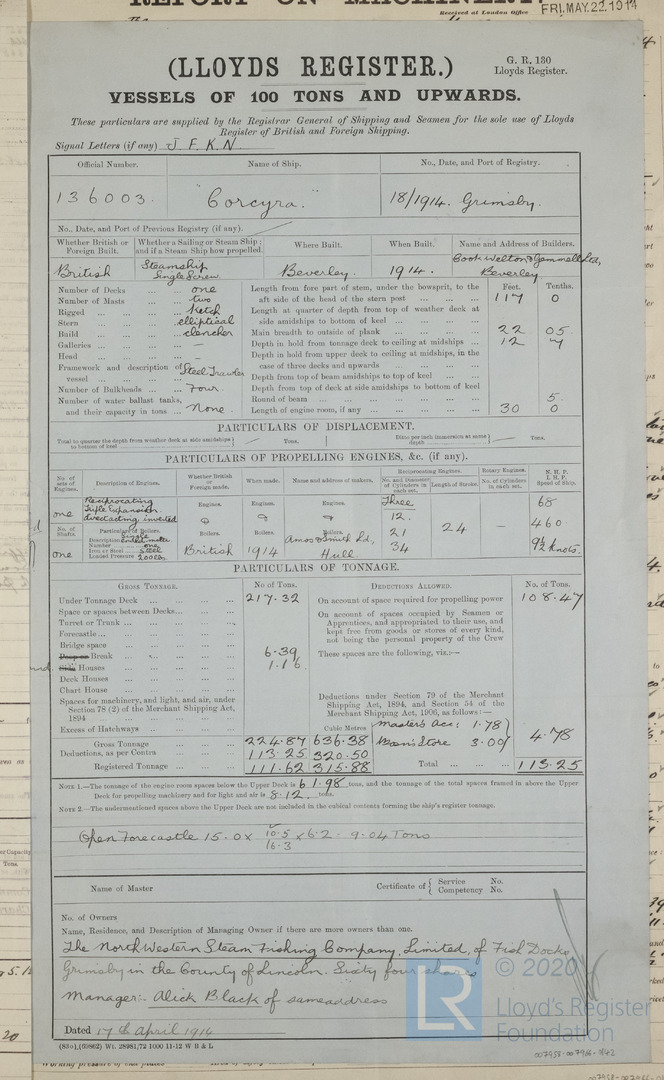 REPORT ON MACHINERY.
Received at London Office FRI. MAY. 22, 1914
(LLOYDS REGISTER.)
G. R. 130
Lloyds Register.
VESSELS OF 100 TONS AND UPWARDS.
These particulars are supplied by the Registrar General of Shipping and Seamen for the sole use of Lloyds
Register of British and Foreign Shipping.
Signal Letters (if any) J. F. K. N.
Official Number. Name of Ship. No., Date, and Port of Registry.
136003. "Corcyra." 18/1914. Grimsby.
No., Date, and Port of Previous Registry (if any).
Whether British or Foreign Built. Whether a Sailing or Steam Ship; and if a Steam Ship how propelled. Where Built. When Built. Name and Address of Builders.
British Steamship Single Screw. Beverley. 1914. Cook Welton & Gemmell Ltd, Beverley
Feet. Tenths.
Number of Decks ... ... one
Number of Masts ... ... two
Rigged ... ... ... Ketch
Stern ... ... ... elliptical
Build ... ... ... clencher
Galleries ... ... ... –
Head ... ... ... –
Framework and description of vessel ... ... ... Steel Trawler
Number of Bulkheads ... ... Four.
Number of water ballast tanks, and their capacity in tons ... None.
Length from fore part of stem, under the bowsprit, to the
aft side of the head of the stern post ... ... ... 117 0
Length at quarter of depth from top of weather deck at
side amidships to bottom of keel ... ... ... ...
Main breadth to outside of plank ... ... ... ... 22 05
Depth in hold from tonnage deck to ceiling at midships ... 12 7
Depth in hold from upper deck to ceiling at midships, in the
case of three decks and upwards ... ... ...
Depth from top of beam amidships to top of keel ... ...
Depth from top of deck at side amidships to bottom of keel
Round of beam ... ... ... ... ... ... 5
Length of engine room, if any ... ... ... ... 30 0
PARTICULARS OF DISPLACEMENT.
Total to quarter the depth from weather deck at side amidships to bottom of keel Tons. Ditto per inch immersion at same depth Tons.
PARTICULARS OF PROPELLING ENGINES, &c. (if any).
No. of sets of Engines. Description of Engines. Whether British or Foreign made. When made. Name and address of makers. Reciprocating Engines. No. and Diameter of Cylinders in each set. Length of Stroke. Rotary Engines. No. of Cylinders in each set. N. H. P. I. H. P. Speed of Ship.
one Reciprocating Triple Expansion. direct acting, inverted Engines. Engines. Engines. Three 12. 68
No. of Shafts. Particulars of Boilers. Boilers. Boilers. Boilers. 21 24 – 460
one Description Single ended mult. Number one Iron or Steel Steel Loaded Pressure 200 lbs British 1914 Amos & Smith Ld, Hull 34 9½ knots.
PARTICULARS OF TONNAGE.
GROSS TONNAGE. No of Tons. DEDUCTIONS ALLOWED. No. of Tons.
Under Tonnage Deck ... ... ... 217.32
Space or spaces between Decks... ... ...
Turret or Trunk ... ... ... ...
Forecastle... ... ... ... ...
Bridge space ... ... ... ...
Poop or Break ... ... ... ... 6.39
Side Houses ... ... ... ... 1.16
Deck Houses ... ... ... ...
Chart House ... ... ... ...
Spaces for machinery, and light, and air, under
Section 78 (2) of the Merchant Shipping Act,
1894 ... ... ... ... ...
Excess of Hatchways ... ... ...
Cubic Metres
Gross Tonnage ... ... 224.87 636.38
Deductions, as per Contra ... ... 113.25 320.50
Registered Tonnage ... ... 111.62 315.88
On account of space required for propelling power 108.47
On account of spaces occupied by Seamen or
Apprentices, and appropriated to their use, and
kept free from goods or stores of every kind,
not being the personal property of the Crew
These spaces are the following, viz.:—
Deductions under Section 79 of the Merchant
Shipping Act, 1894, and Section 54 of the
Merchant Shipping Act, 1906, as follows:—
Master's Acc: 1.78
Bosn's Store 3.00
4.78
Total ... ... ... 113.25
NOTE 1.—The tonnage of the engine room spaces below the Upper Deck is 61.98 tons, and the tonnage of the total spaces framed in above the Upper
Deck for propelling machinery and for light and air is 8.12. tons.
NOTE 2.—The undermentioned spaces above the Upper Deck are not included in the cubical contents forming the ship's register tonnage.
Open Forecastle 15.0 x 10.5 / 16.3 x 6.2 = 9.04 Tons
Name of Master Certificate of { Service No. Competency No.
No. of Owners
Name, Residence, and Description of Managing Owner if there are more owners than one.
The North Western Steam Fishing Company, Limited, of Fish Docks
Grimsby in the County of Lincoln. Sixty four shares
Manager:- Alick Black of same address
Dated 17th April 1914
(83o),(69862) Wt. 28981/72 1000 11-12 W B & L
© 2020
LR
Lloyd's Register
Foundation
007958-007966-0142